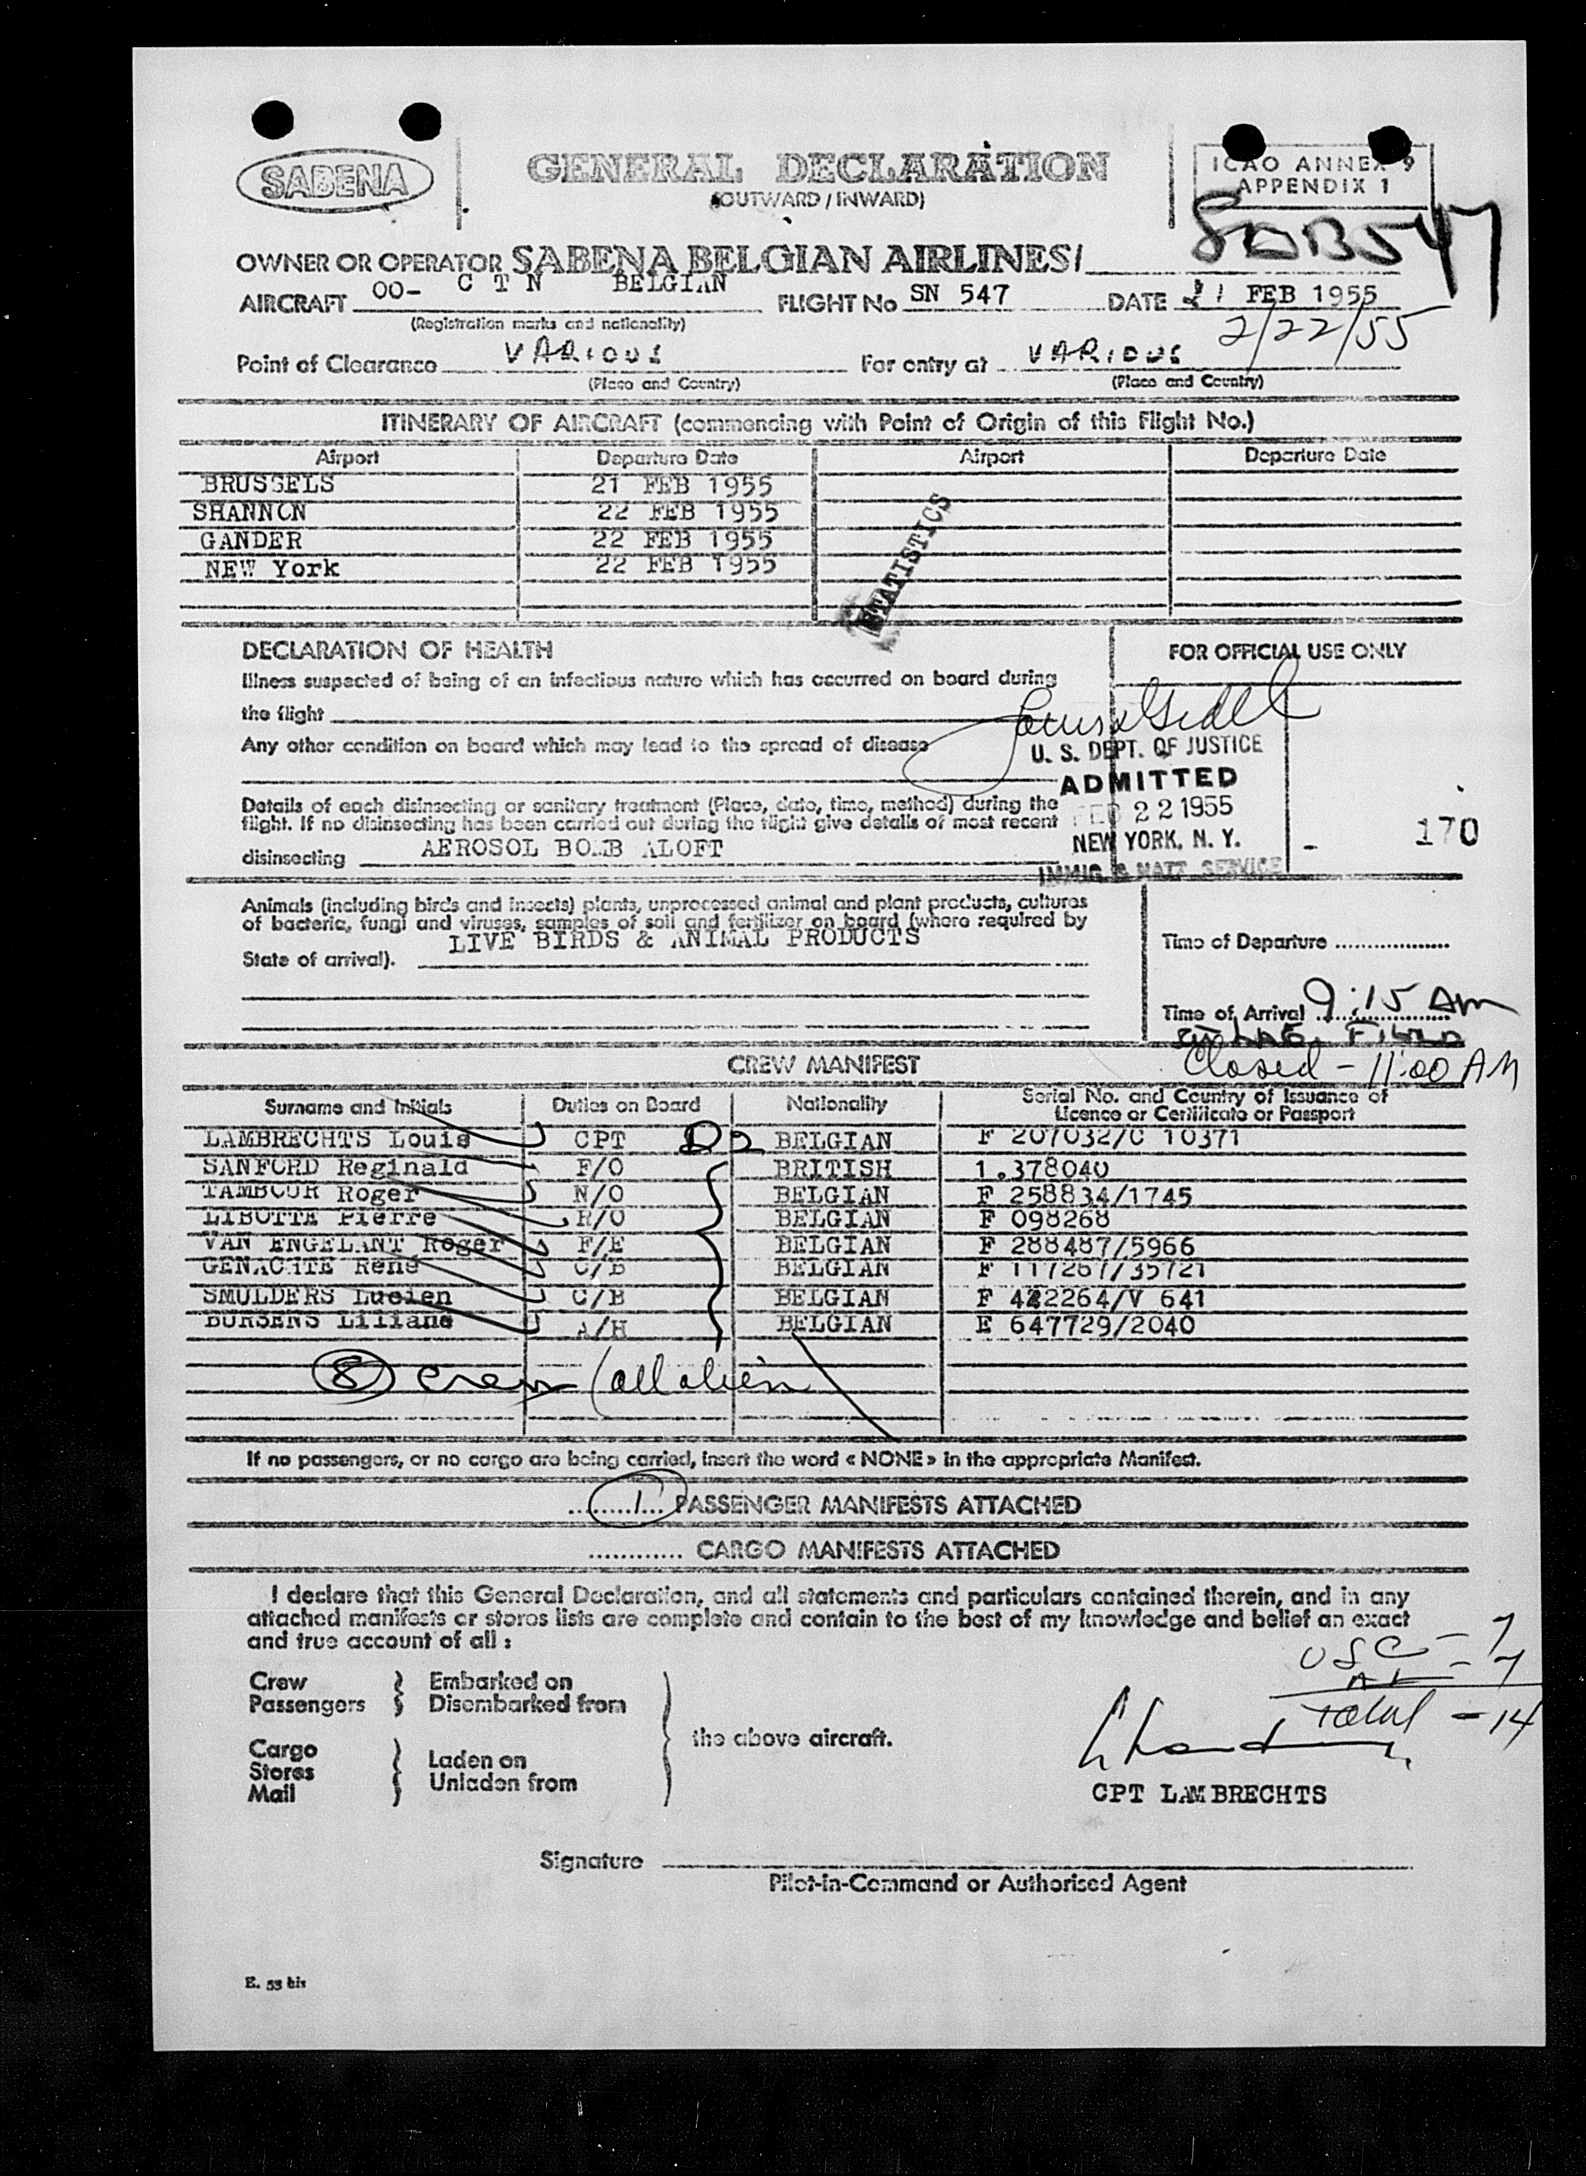 SABENA
GENERAL DECLARATION
(OUTWARD / INWARD)
ICAO ANNEX 9
APPENDIX 1
SAB547
OWNER OR OPERATOR SABENA BELGIAN AIRLINES/
AIRCRAFT OO- C T N BELGIAN FLIGHT No SN 547 DATE 21 FEB 1955
(Registration marks and nationality)
2/22/55
Point of Clearance VARIOUS For entry at VARIOUS
(Place and Country) (Place and Country)
ITINERARY OF AIRCRAFT (commencing with Point of Origin of this Flight No.)
Airport Departure Date Airport Departure Date
BRUSSELS 21 FEB 1955
SHANNON 22 FEB 1955
GANDER 22 FEB 1955
NEW York 22 FEB 1955
STATISTICS
DECLARATION OF HEALTH
FOR OFFICIAL USE ONLY
Illness suspected of being of an infectious nature which has occurred on board during
the flight
Any other condition on board which may lead to the spread of disease
U. S. DEPT. OF JUSTICE
ADMITTED
FEB 22 1955
NEW YORK, N. Y.
IMMIG & NATZ SERVICE
Details of each disinsecting or sanitary treatment (Place, date, time, method) during the
flight. If no disinsecting has been carried out during the flight give details of most recent
disinsecting AEROSOL BOMB ALOFT
- 170
Animals (including birds and insects) plants, unprocessed animal and plant products, cultures
of bacteria, fungi and viruses, samples of soil and fertilizer on board (where required by
State of arrival). LIVE BIRDS & ANIMAL PRODUCTS
Time of Departure
Time of Arrival 9:15 AM
Closed - 11:00 AM
CREW MANIFEST
Surname and Initials Duties on Board Nationality Serial No. and Country of Issuance of
Licence or Certificate or Passport
LAMBRECHTS Louis CPT BELGIAN F 207032/C 10371
SANFORD Reginald F/O BRITISH 1.378040
TAMBOUR Roger N/O BELGIAN F 258834/1745
LIBOTTE Pierre R/O BELGIAN F 098268
VAN ENGELANT Roger F/E BELGIAN F 288487/5966
GENACHTE Rene C/B BELGIAN F 117267/35721
SMULDERS Lucien C/B BELGIAN F 422264/V 641
BURSENS Liliane A/H BELGIAN E 647729/2040
8 crew (all alien
If no passengers, or no cargo are being carried, insert the word « NONE » in the appropriate Manifest.
1 PASSENGER MANIFESTS ATTACHED
............ CARGO MANIFESTS ATTACHED
I declare that this General Declaration, and all statements and particulars contained therein, and in any
attached manifests or stores lists are complete and contain to the best of my knowledge and belief an exact
and true account of all :
USC - 7
AL - 7
Total - 14
Crew Embarked on
Passengers Disembarked from
the above aircraft.
Cargo
Stores Laden on
Mail Unladen from
CPT LAMBRECHTS
Signature
Pilot-in-Command or Authorised Agent
E. 53 bis